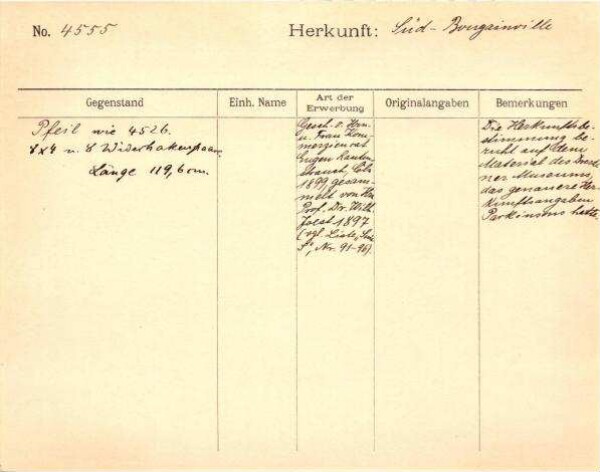 No. 4555
Herkunft: Süd-Bougainville
Gegenstand
Einh. Name
Art der
Erwerbung
Originalangaben
Bemerkungen
Pfeil wie 4526.
4x4 u. 8 Widerhakenpaare
Länge 119,6 cm.
Gesch. v. Hrn.
u. Frau Kom-
merzienrat
Eugen Rauten-
strauch, Cöln
1899, gesam-
melt von Hn
Prof. Dr. Wilh.
Joest 1897
(vgl. Liste,
Nr. 91-96).
Die Herkunftsbe-
stimmung be-
ruht auf dem
Material des Dresd-
ner Museums,
das genauere Her-
kunftsangaben
Parkinsons hatte.